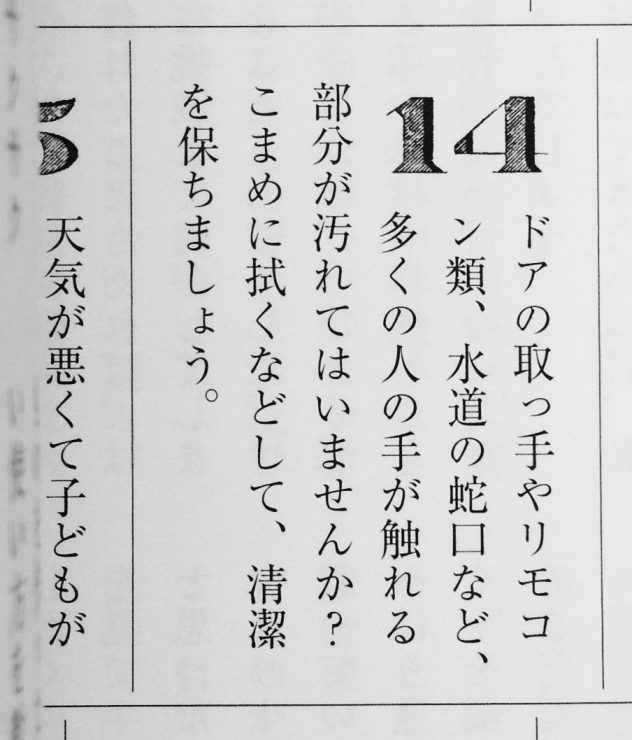 14
ドアの取っ手やリモコ
ン類、水道の蛇口など、
多くの人の手が触れる
部分が汚れてはいませんか?
こまめに拭くなどして、清潔
を保ちましょう。
天気が悪くて子どもが